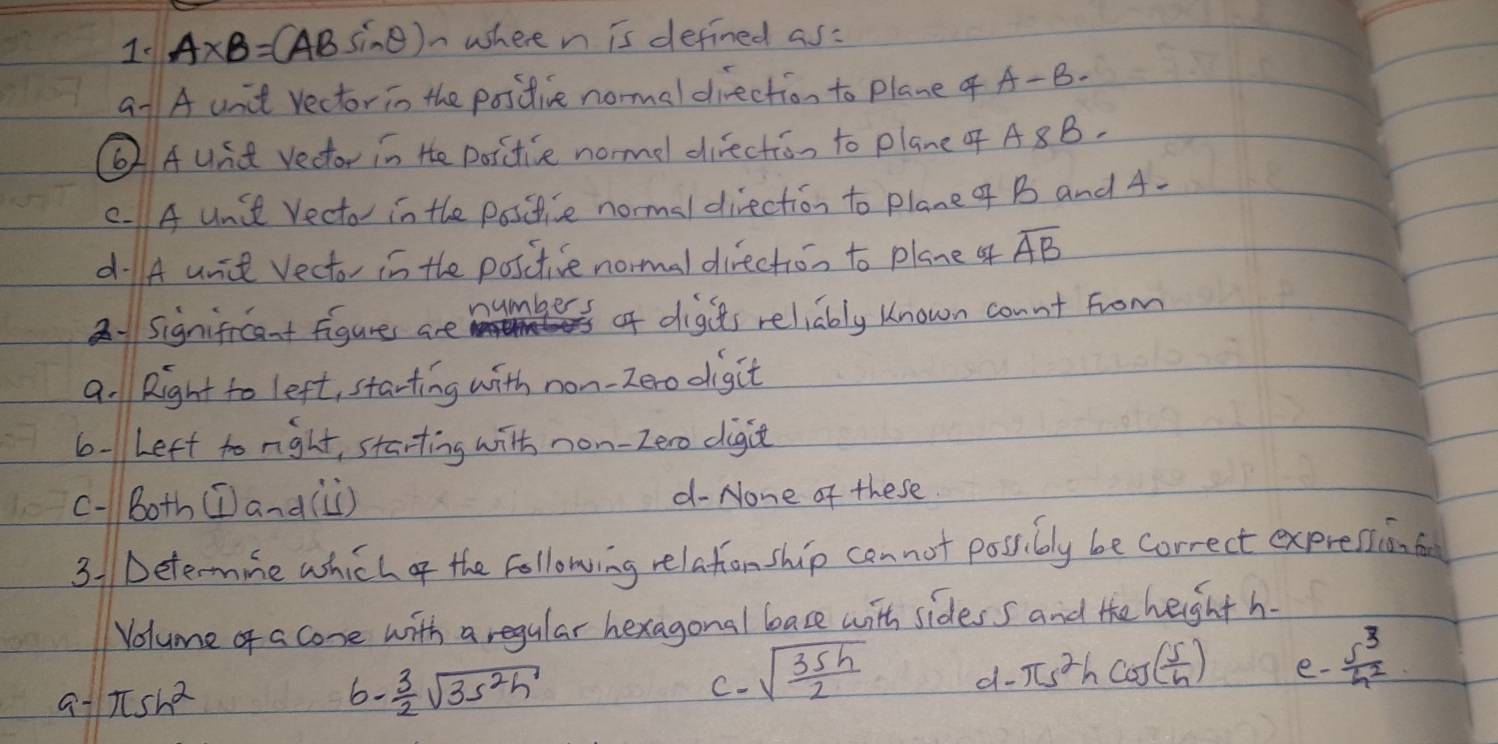 1. A×B=(AB sinθ)n where n is defined as:
a- A unit vector in the positive normal direction to plane of A-B.
b- A unit vector in the positive normal direction to plane of A & B.
c- A unit vector in the positive normal direction to plane of B and A.
d- A unit vector in the positive normal direction to plane of A̅B̅
2- Significant figures are numbers of digits reliably known count from
a- Right to left, starting with non-zero digit
b- Left to right, starting with non-zero digit
c- Both (i) and (ii) d- None of these.
3- Determine which of the following relationship cannot possibly be correct expression for
Volume of a cone with a regular hexagonal base with sides s and the height h-
a- πsh² b- 3/2 √(3s²h) c- √(3sh/2) d- πs²h cos(s/h) e- s³/h².